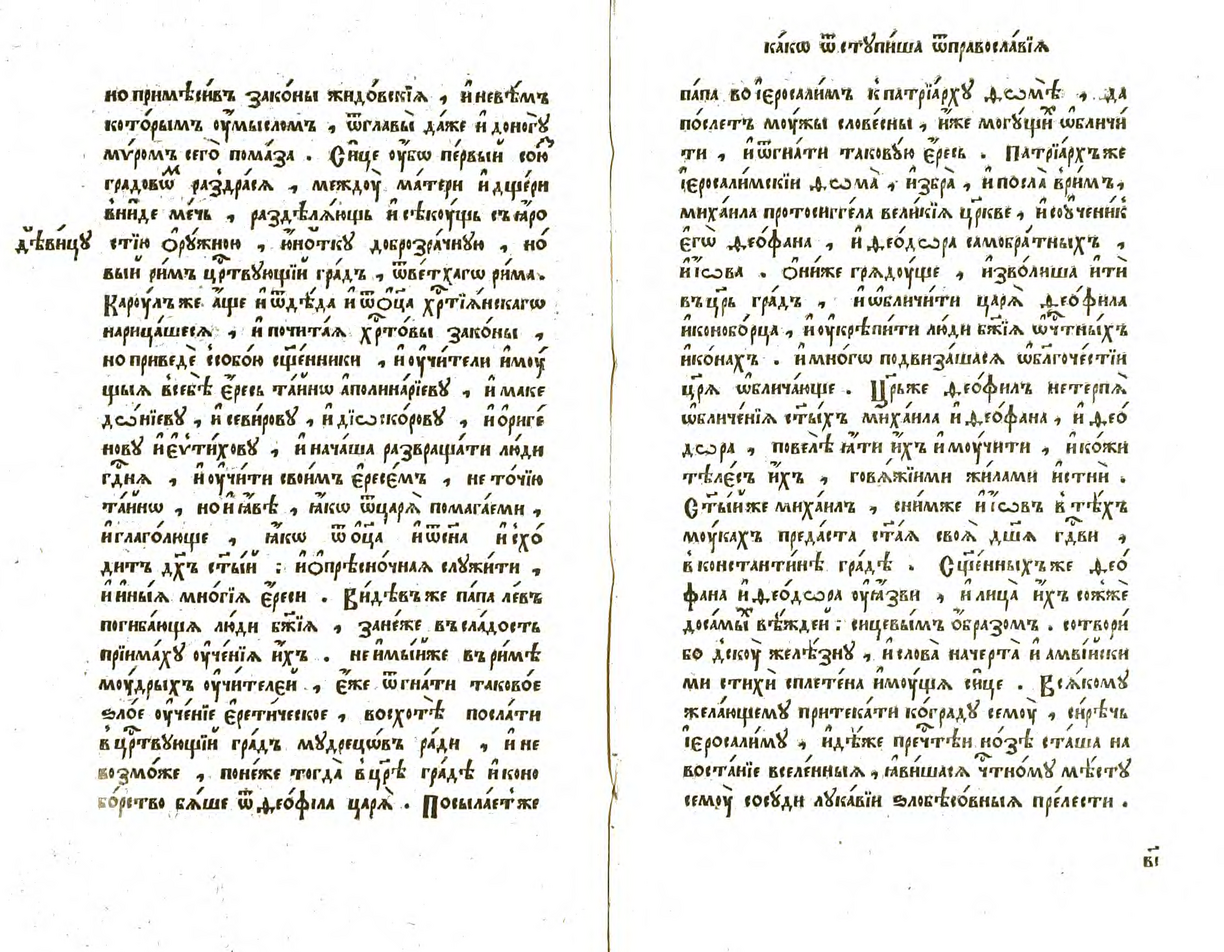 но примѣси́въ зако́ны жидо́вскїѧ , и҆невѣ́мъ
кото́рымъ ᲂу҆́мысломъ , ѿглавы̀ да́же и҆ доногꙋ̀
мѵ́ромъ сегѡ̀ пома́за . Си́це ᲂу҆́бѡ пе́рвый сою́ꙁ
градовѡ́м раздра́сѧ , междоу̀ ма́тери и҆ дще́ри
вни́де ме́чь , раздѣлѧ́ющь и҆ сѣкоу́щь съ ꙗ҆́ро
дѣви́цꙋ
стїю ѻ҆рꙋ́жною , ю҆́нотку доброзра́чную , но́
вый ри́мъ цр҇твующїй гра́дъ , ѿве́тхагѡ ри́ма .
Кароу́лъже а҆́ще и҆ ѿдѣ́да и҆ ѿѻ҆ц҃а̀ хр҇тїѧ́нскагѡ
нарица́шесѧ , и҆ почита́ѧ хр҇то́вы зако́ны ,
но приведѐ ссобо́ю сщ҃е́нники , и҆ ᲂу҆чи́тели и҆мᲂу́
щыѧ всебѣ̀ є҆́ресь та́йнѡ а҆полина́рїеву , и҆ маке
дѡ́нїеву , и҆ севи́рову , и҆ дїѡско́рову , и҆ ѻ҆риге́
нову и҆ є҆ѵти́хову , и҆ нача́ша развраща́ти лю́ди
гд҇нѧ , и҆ ᲂу҆чи́ти свои́мъ є҆ресе́мъ , не то́чїю
та́йнѡ , но и҆ ꙗ҆́вѣ , ꙗ҆́кѡ ѿцарѧ̀ помага́еми ,
и҆ глаго́люще , ꙗ҆́кѡ ѿ ѻ҆ц҃а̀ и҆ ѿсн҃а и҆схо́
дитъ дх҃ъ ст҃ы́й : и҆ ѻ҆прѣсно́чнаѧ служи́ти ,
и҆ и҆ны́ѧ мно́гїѧ є҆́реси . Ви́дѣвъ же па́па ле́въ
погиба́ющѧ лю́ди бж҃їѧ , зане́же въ сла́дость
прїима́ху ᲂу҆че́нїѧ и҆́хъ . не и҆мы́йже въ ри́мѣ
моу́дрыхъ ᲂу҆чи́телей , є҆́же ѿгна́ти таково́е
ѕло́е ᲂу҆че́нїе є҆рети́ческое , восхотѣ̀ посла́ти
в цр҇твующїй гра́дъ мудрецѡ́въ ра́ди , и҆ не
возмо́же , поне́же тогда̀ в цр҃ѣ гра́дѣ и҆коно
бо́рство бѧ́ше ѿ ѳео́фїла царѧ̀ . Посыла́етже
ка́кѡ ѿступи́ша ѿправосла́вїѧ
па́па во і҆ерᲂсали́мъ к патрїа́рху ѳѡмѣ̀ , да
по́слетъ моу́жы слове́сны , и҆́же могу́щих ѡ҆бличи́
ти , и҆ ѿгна́ти такову́ю є҆́ресь . Патрїа́рхъже
і҆ерᲂсали́мскїи ѳѡма̀ , и҆збра̀ , и҆ посла̀ в ри́мъ ,
михаи́ла протосигге́ла вели́кїѧ цр҃кве , и҆ соᲂу҆чени́к
є҆гѡ̀ ѳео́фана , и҆ ѳео́дѡра самобра́тныхъ ,
и҆ і҆ѡва . Ѻ҆ни́же грѧдоу́ще , и҆зво́лиша и҆тѝ
въ цр҃ь гра́дъ , и҆ ѡ҆бличи́ти царѧ̀ ѳео́фила
и҆конобо́рца , и҆ ᲂу҆крѣпи́ти лю́ди бж҃їѧ ѡ҆ч҇тны́хъ
и҆ко́нахъ . и҆ мно́гѡ подвиза́шасѧ ѡ҆бл҃гоче́стїи
цр҃ѧ̀ ѡ҆блича́юще . Цр҃ьже ѳео́филъ нетерпѧ̀
ѡ҆бличе́нїѧ ст҃ы́хъ михаи́ла и҆ ѳео́фана , и҆ ѳео́
дѡра , повелѣ̀ ꙗ҆́ти и҆́хъ и҆ моучи́ти , и҆ ко́жи
тѣле́съ и҆́хъ , говѧ́жїими жи́лами и҆стнѝ .
Ст҃ы́йже михаи́лъ , сни́мже и҆ і҆ѡвъ в тѣ́хъ
моу́кахъ преда́ста ст҃а́ѧ своѧ̀ дш҃ѧ̀ гд҇ви ,
в константи́нѣ гра́дѣ . Сщ҃е́нныхъже ѳео́
фана и҆ ѳео́дѡра ᲂу҆ꙗ҆зви̑ , и҆ лица̀ и҆́хъ сожжѐ
досамы́х вѣ́ждей : сицевы́мъ ѻ҆́бразомъ . сотвори́
бо дскоу̀ желѣ́зну , и҆ слова̀ начерта̀ и҆ амви́йски
ми стихѝ сплете́на и҆моу́щїѧ си́це . Всѧ́кому
жела́ющему притека́ти ко́граду семоу̀ , си́рѣчь
і҆ерᲂсали́му , и҆дѣ́же преч҇тѣи но́зѣ ста́ша на
воста́нїе вселе́нныѧ , ꙗ҆ви́шасѧ ч҇тному мѣ́сту
семоу̀ сосу́ди лука́вїи ѕлобѣсо́вныѧ пре́лести .
в҃і